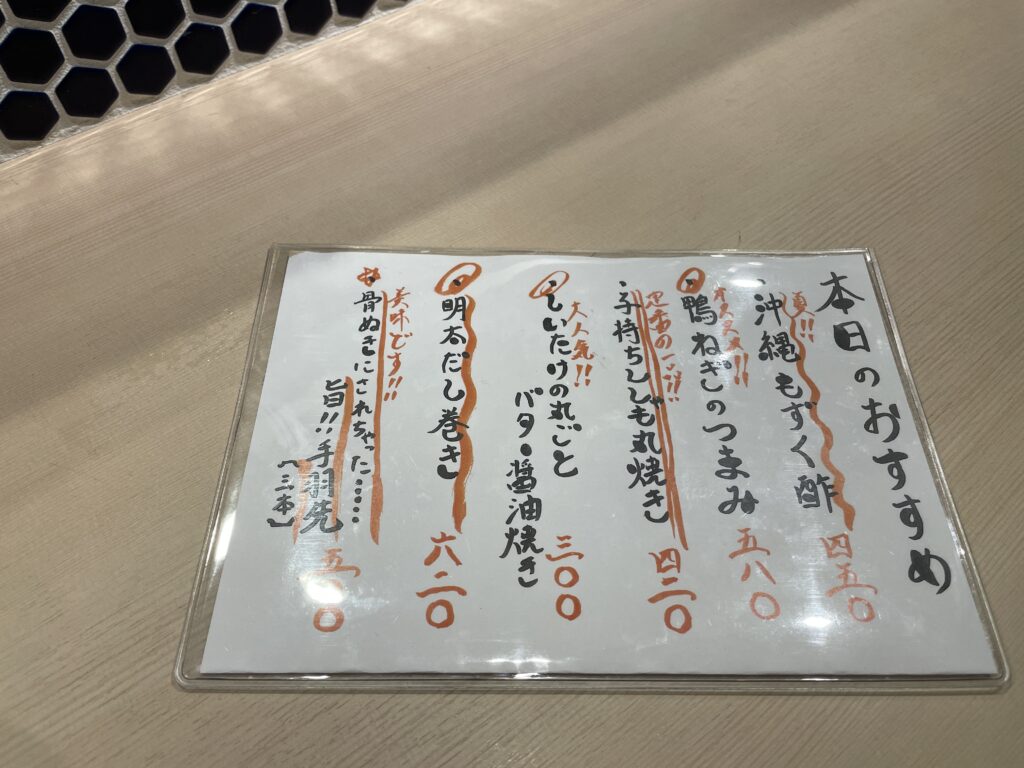 本日のおすすめ
夏!!
・沖縄もずく酢 四五〇
オススメ!!
・鴨ねぎしのつまみ 五八〇
定番の一品!!
・子持ちししゃも丸焼き 四二〇
大人気!!
・しいたけの丸ごと
バター醤油焼き 三〇〇
・明太だし巻き 六二〇
美味です!!
・骨ぬきにされちゃった……
旨!!手羽先
〔三本〕 五一〇